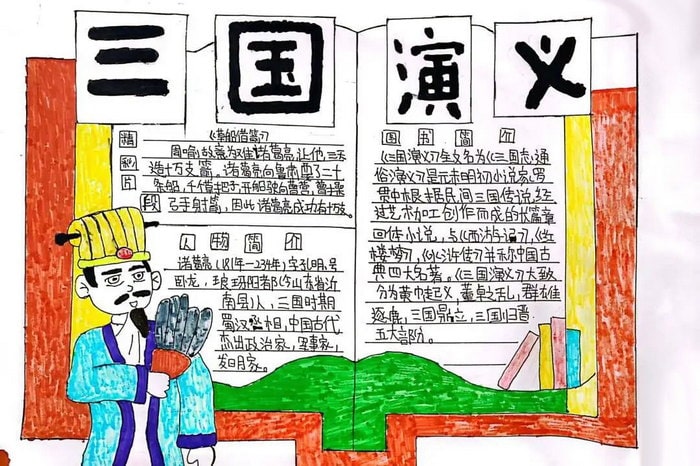 三国演义
精彩片段
《草船借箭》
周瑜故意为难诸葛亮,让他三天
造十万支箭。诸葛亮向鲁肃要了二十
条船,千个草把子,开船驶向曹营,曹操
弓手射箭,因此诸葛亮成功有十万支。
人物简介
诸葛亮(181年-234年)字孔明,号
卧龙,琅玡阳都(今山东省沂
南县)人,三国时期
蜀汉丞相,中国古代
杰出政治家,军事家,
发明家。
图书简介
《三国演义》全名为《三国志通
俗演义》是元末明初小说家罗
贯中根据民间三国传说,经
过艺术加工创作而成的长篇章
回体小说,与《西游记》,《红
楼梦》,《水浒传》并称中国古
典四大名著。《三国演义》大致
分为黄巾起义,董卓之乱,群雄
逐鹿,三国鼎立,三国归晋
五大部份。